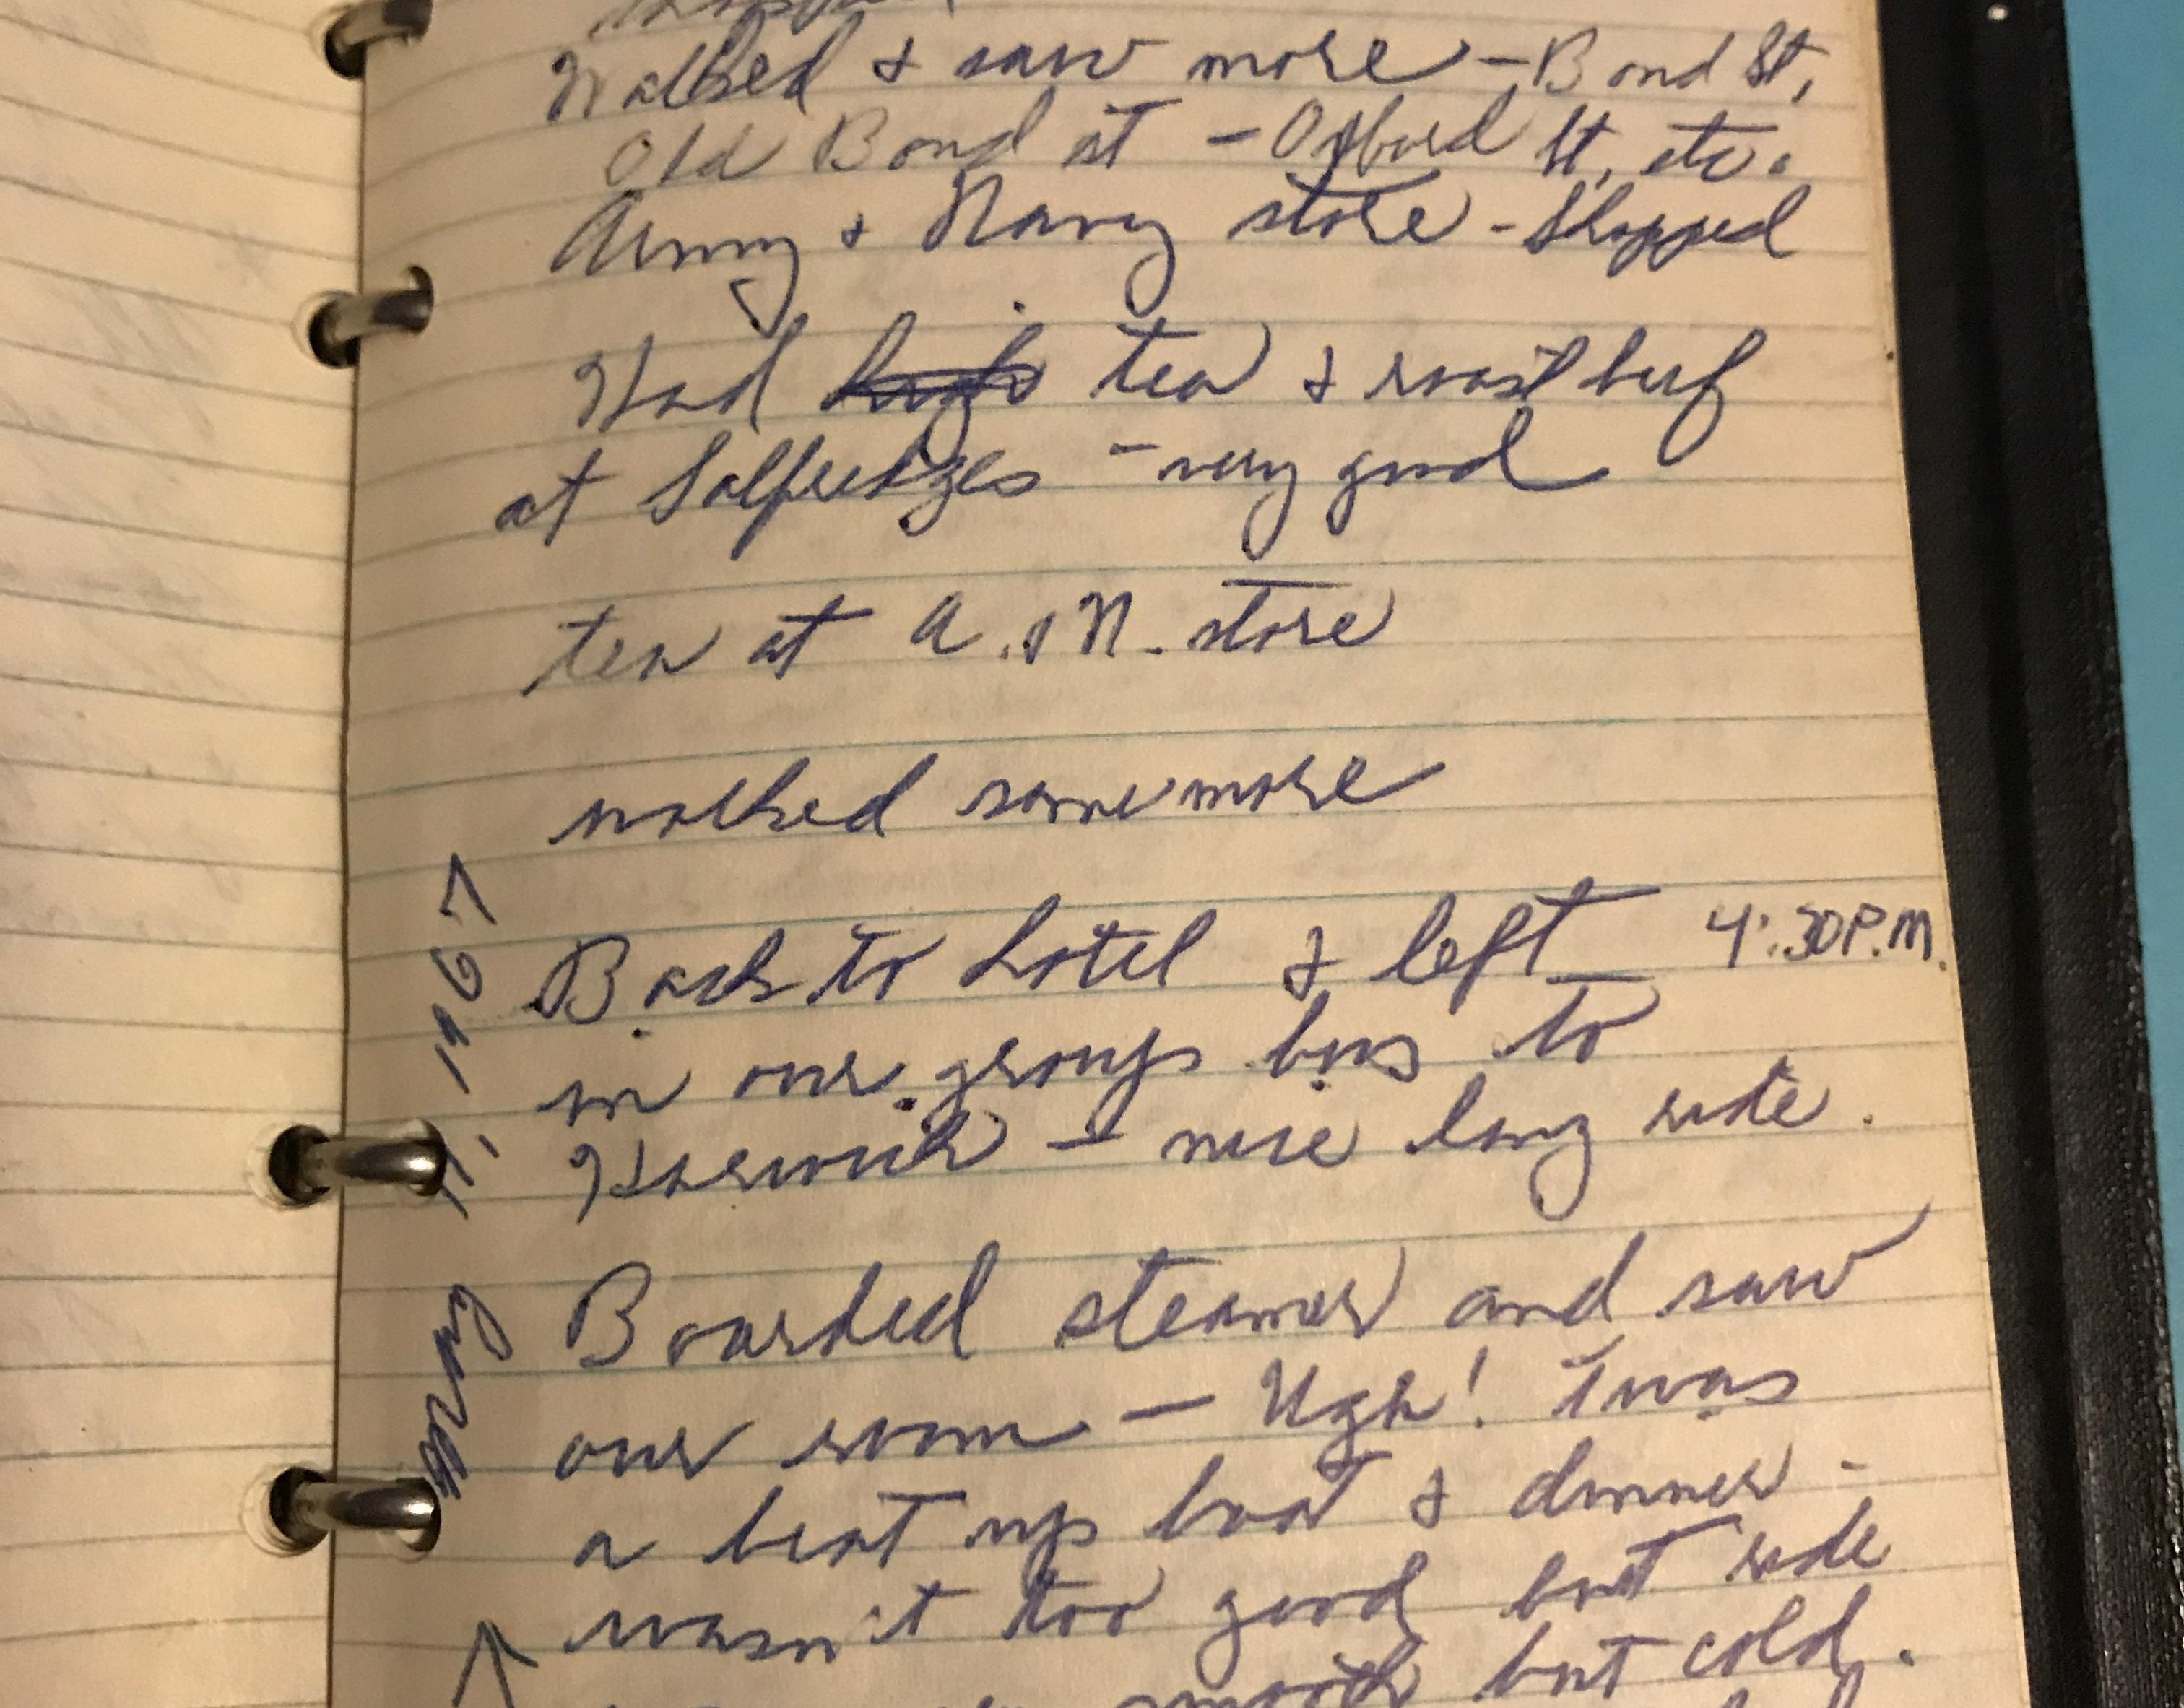 Walked & saw more - Bond St,
Old Bond st - Oxford St, etc.
Army & Navy store - Shopped
Had high tea & roast beef
at Selfridges - very good
tea at A. & N. store
walked some more
Back to hotel & left 4:30 P.M.
in our group bus to
Harwich - nice long ride.
Boarded steamer and saw
our room - Ugh! Twas
a beat up boat & dinner -
wasn't too good but ride
smooth but cold.
May 11, 1967